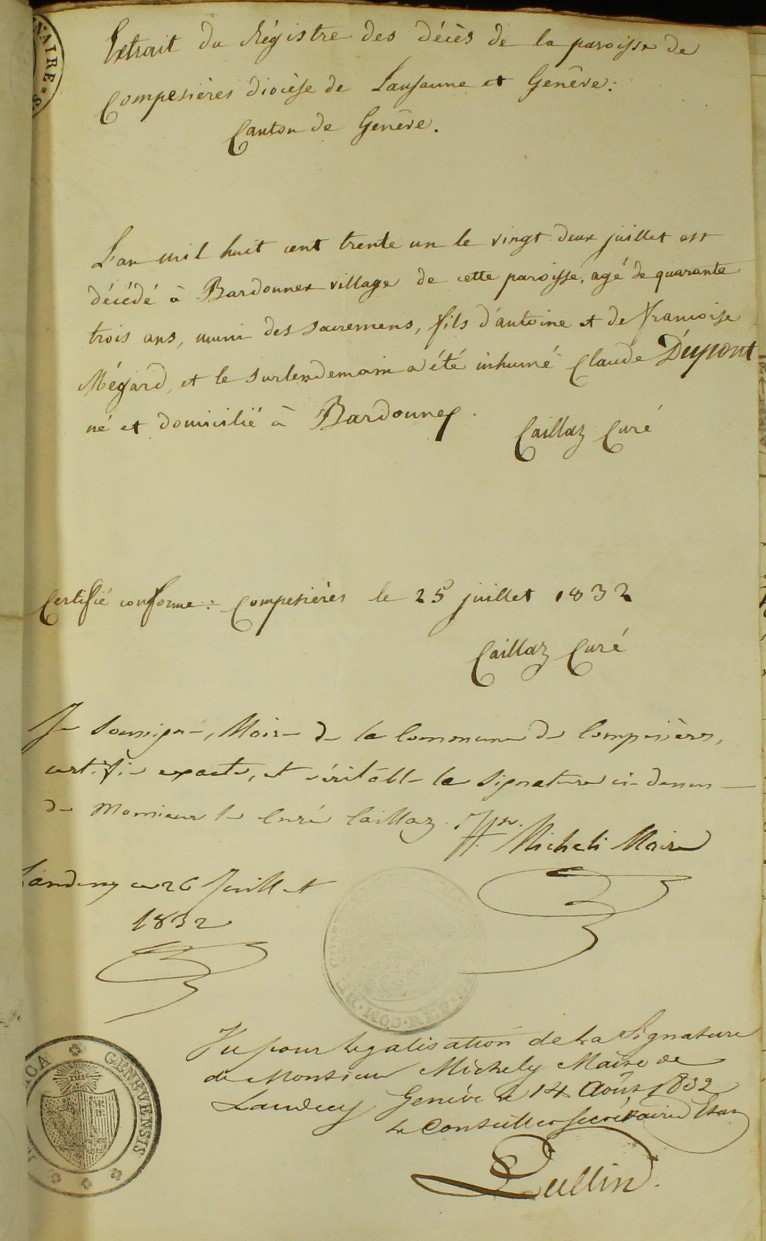 NAIRE
Extrait du Régistre des décès de la paroisse de
Compesières diocèse de Lausanne et Genève :
Canton de Genève.
L'an mil huit cent trente un le vingt deux juillet est
décédé à Bardonnex village de cette paroisse, agé de quarante
trois ans, muni des sacremens, fils d'antoine et de francoise
Mégard, et le surlendemain a été inhumé Claude Dupont
né et domicilié à Bardonnex.
Caillaz Curé
Certifié conforme : Compesières le 25 juillet 1832
Caillaz Curé
Je soussigné, Maire de la Commune de Compesières,
certifie exacte, et véritable la signature ci-dessus
de Monsieur le Curé Caillaz.
Micheli Maire
Landecy ce 26 Juillet
1832
Vu pour légalisation de la Signature
de Monsieur Michely Maire de
Landecy Genève le 14 Août 1832
Le Conseiller Secrétaire d'Etat
Lullin.
GENEVENSIS